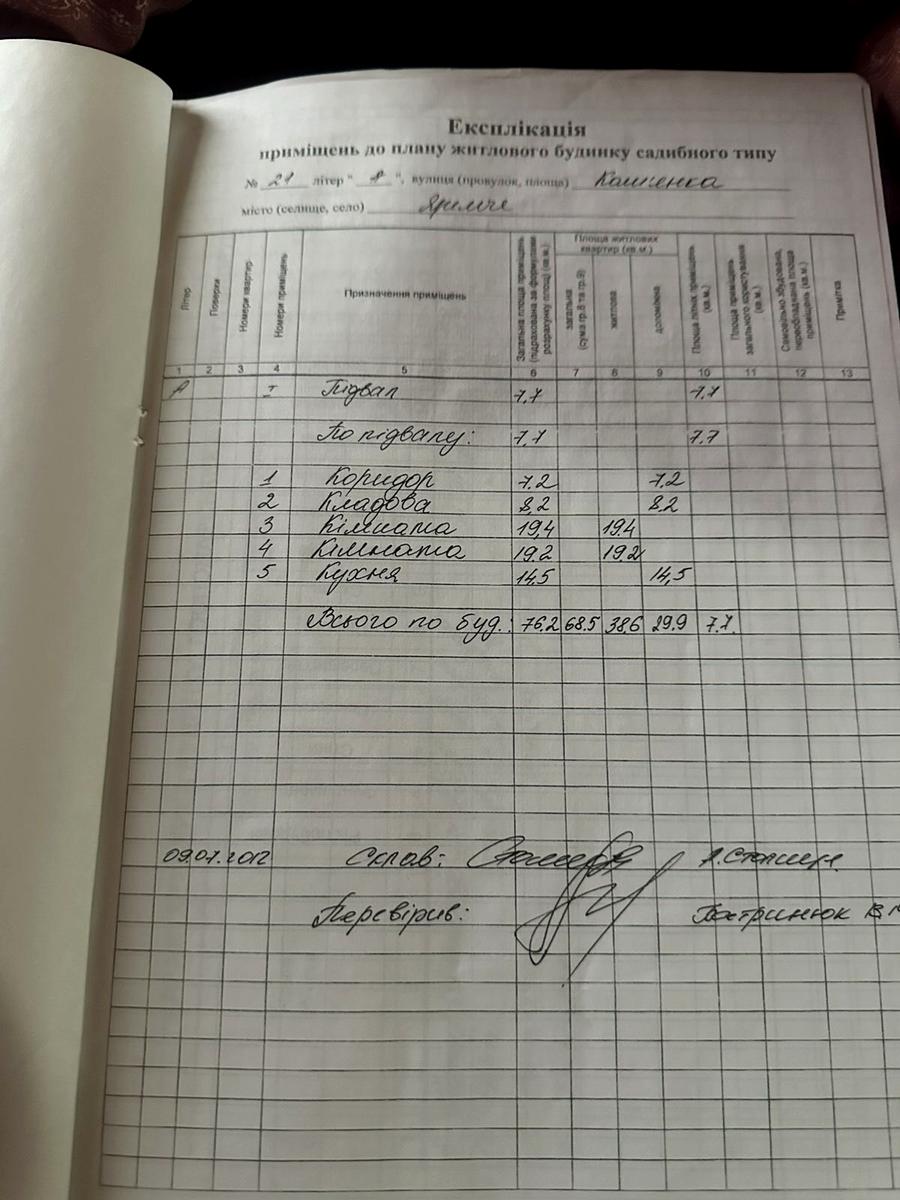 Експлікація
приміщень до плану житлового будинку садибного типу
№ 21 літер " А ", вулиця (провулок, площа) Кошенка
місто (селище, село) Яремче
Літер Поверхи Номери квартир Номери приміщень Призначення приміщень Загальна площа приміщень (підрахована за формулами розрахунку площ) (кв.м.) Площа житлових квартир (кв.м.) загальна (сума гр.8 та гр.9) житлова допоміжна Площа літніх приміщень (кв.м.) Площа приміщень загального користування (кв.м.) Самовільно збудована, переобладнана площа приміщень (кв.м.) Примітка
1 2 3 4 5 6 7 8 9 10 11 12 13
А I Підвал 7,7 7,7
По підвалу: 7,7 7.7
1 Коридор 7,2 7,2
2 Кладова 8,2 8,2
3 Кімната 19,4 19.4
4 Кімната 19.2 19.2
5 Кухня 14,5 14,5
Всього по буд.: 76,2 68.5 38,6 29.9 7.7
09.07.2012 Склав:
Перевірив: